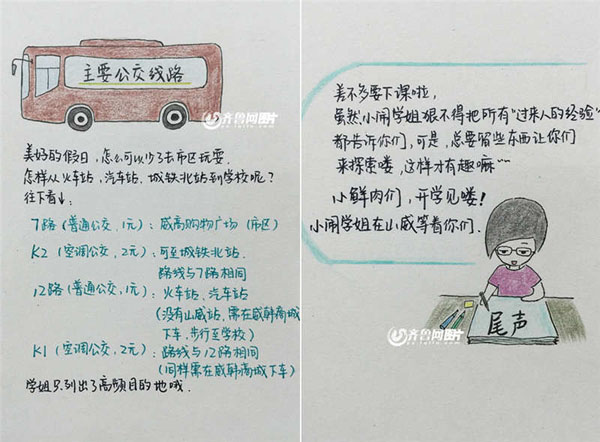 主要公交线路
齐鲁网图片
美好的假日,怎么可以少了去市区玩耍.
怎样从火车站,汽车站、城铁北站到学校呢?
往下看↓:
7路(普通公交,1元):威高购物广场(市区)
K2(空调公交,2元):可至城铁北站.
路线与7路相同
12路(普通公交,1元):火车站、汽车站
(没有山威站,需在威韩商城
下车,步行至学校)
K1(空调公交,2元):路线与12路相同
(同样需在威韩商城下车)
学姐只列出了高频目的地哦.
差不多要下课啦,
虽然小闹学姐恨不得把所有“过来人的经验”
都告诉你们,可是,总要留些东西让你们
来探索喽,这样才有趣嘛~~
小鲜肉们,开学见喽!
小闹学姐在山威等着你们.
尾声
齐鲁网图片